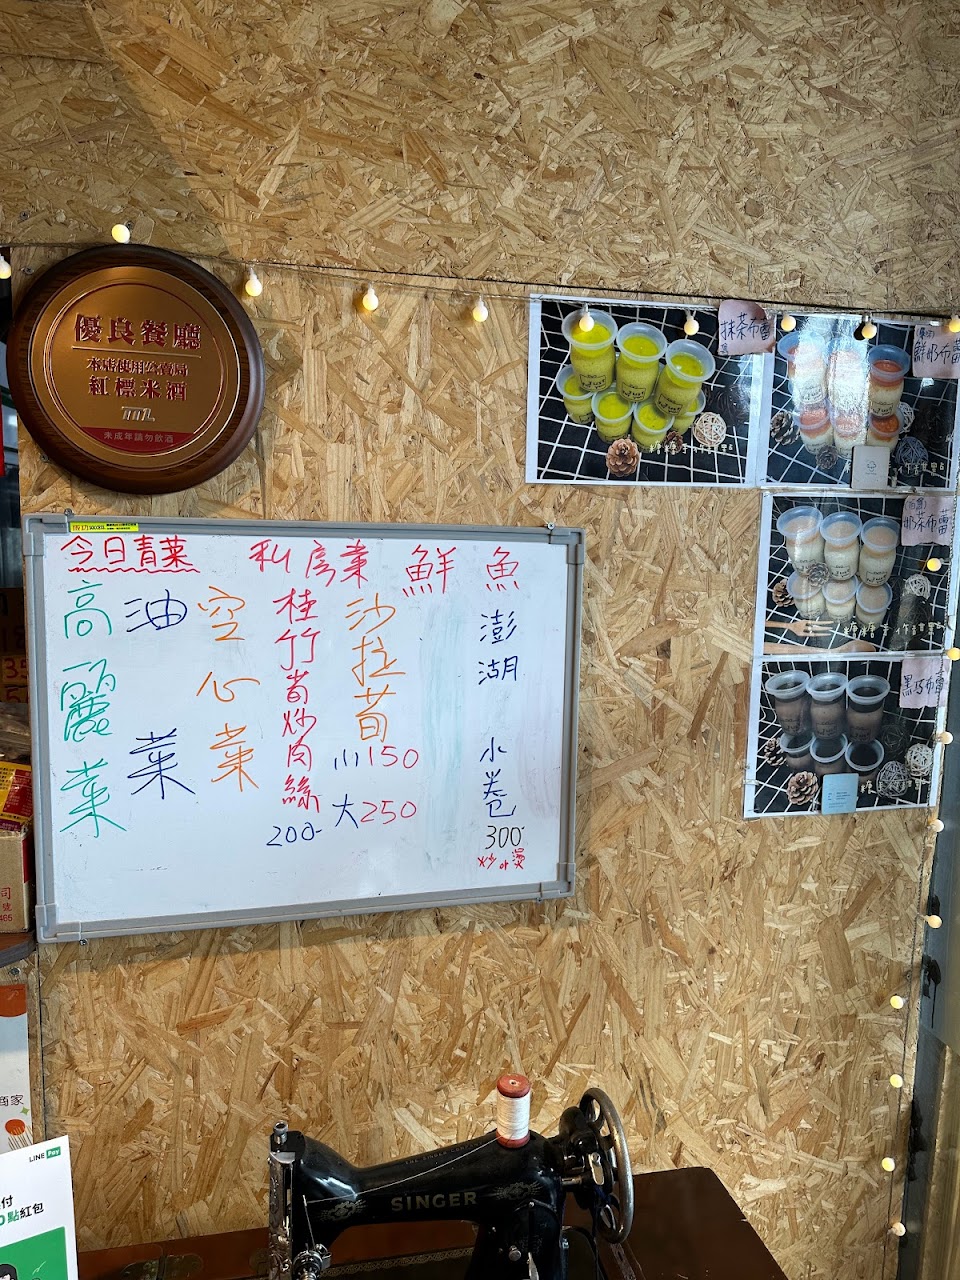 優良餐廳
本店使用公賣局
紅標米酒
未成年請勿飲酒
今日青菜
高麗菜
油菜
空心菜
私房菜
桂竹筍炒肉絲
200-
沙拉筍
小150
大250
鮮魚
澎湖小卷
300-
炒or燙
抹茶布蕾
鮮奶布蕾
奶茶布蕾
黑巧布蕾
糖糖手作甜點
糖糖手作甜點
SINGER
LINE Pay
付
點紅包
商家
司
號
465